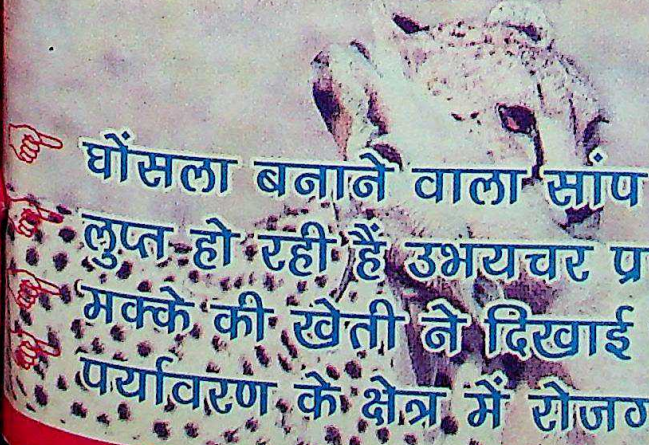 घोंसला बनाने वाला सांप
लुप्त हो रही हैं उभयचर प्र
मक्के की खेती ने दिखाई
पर्यावरण के क्षेत्र में रोजग